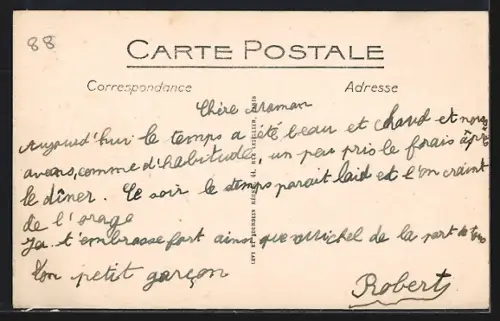 88
CARTE POSTALE
Correspondance
Adresse
Chère Maman
Aujourd'hui le temps a été beau et chaud et nous
avons, comme d'habitude, un peu pris le frais après
le dîner. Ce soir le temps parait laid et l'on craint
de l'orage
Je t'embrasse fort ainsi que Michel de la part de ton
ton petit garçon
Robert
LÉVY ET NEURDEIN RÉUNIS, 44, RUE LETELLIER, PARIS